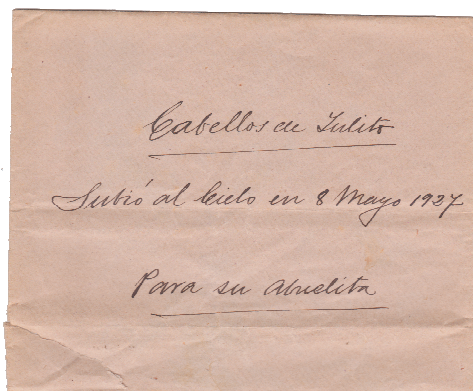 Cabellos de Julito
Subió al Cielo en 8 Mayo 1927
Para su Abuelita